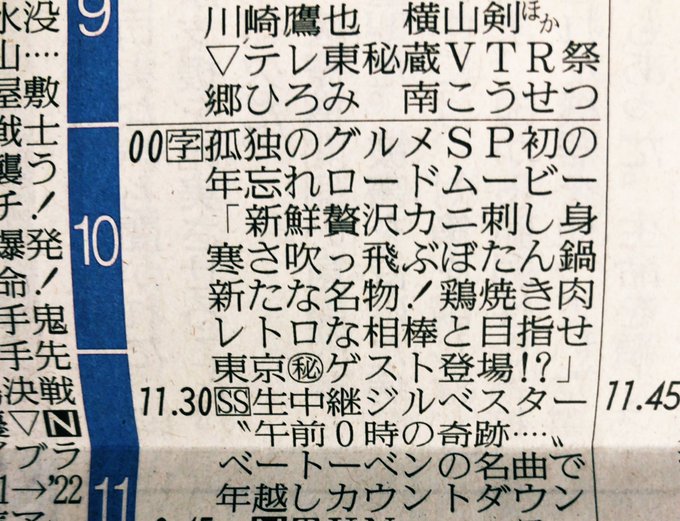 没
‥‥
屋敷
戦士
襲う
チ！
爆発！
命！
手鬼
手先
決戦
▽N
ブラ
1→'22
9
10
11
川崎鷹也　横山剣ほか
▽テレ東秘蔵VTR祭
郷ひろみ　南こうせつ
00字孤独のグルメSP初の
年忘れロードムービー
「新鮮贅沢カニ刺し身
寒さ吹っ飛ぶぼたん鍋
新たな名物！鶏焼き肉
レトロな相棒と目指せ
東京㊙ゲスト登場!?」
11.30SS生中継ジルベスター
〝午前0時の奇跡‥‥〟
ベートーベンの名曲で
年越しカウントダウン
11.45